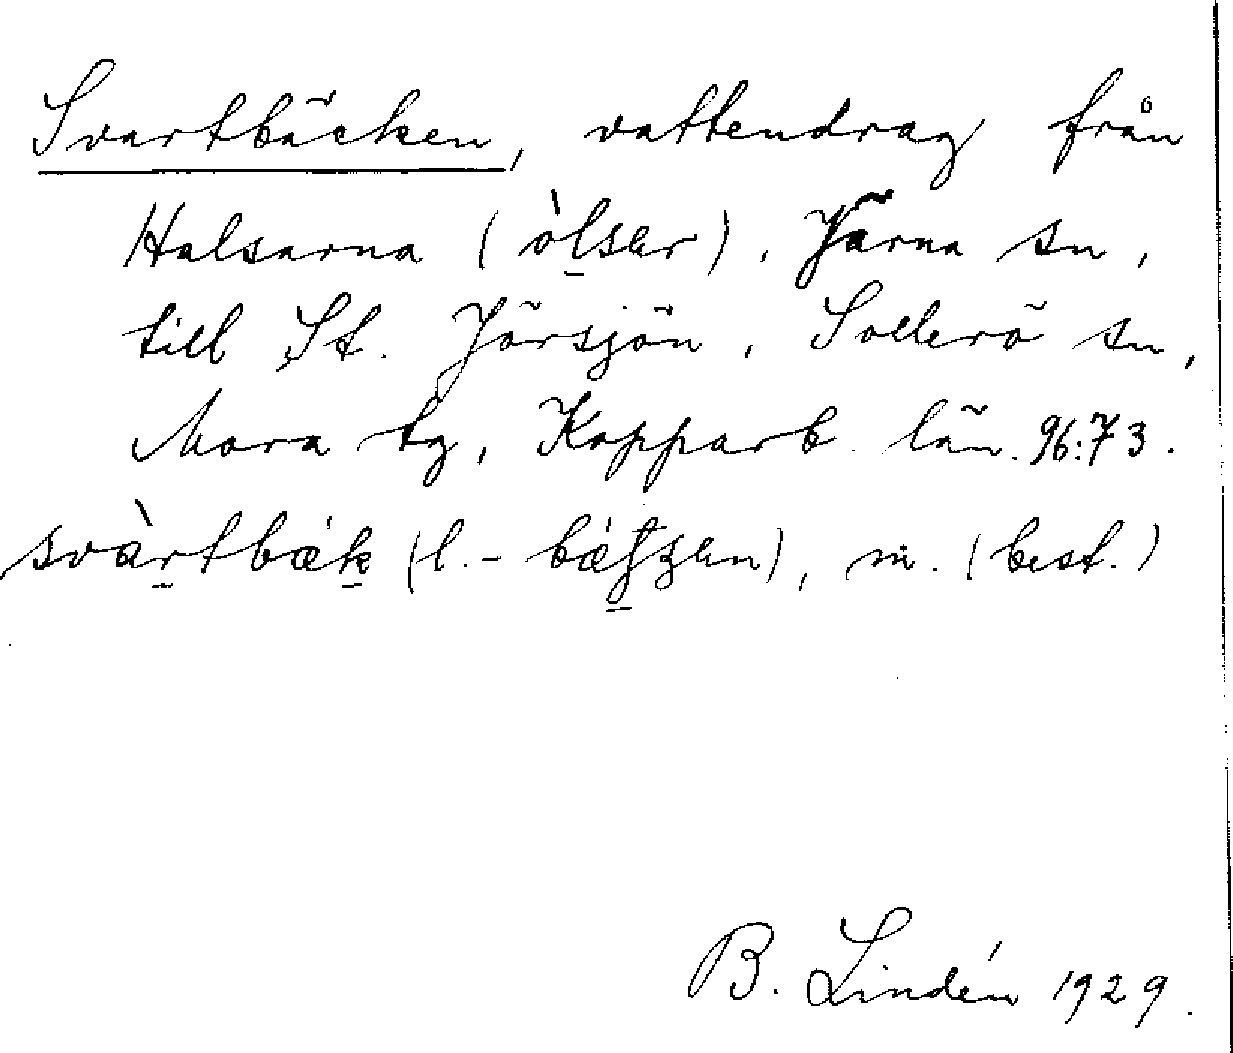 Svartbäcken, vattendrag från
Halsarna (òlsar), Järna sn,
till St. Jörsjön, Sollerö sn,
Mora tg, Kopparb. län. 96:73.
svàrtbæk (l. -        ), m. (best.)
B. Lindén 1929.